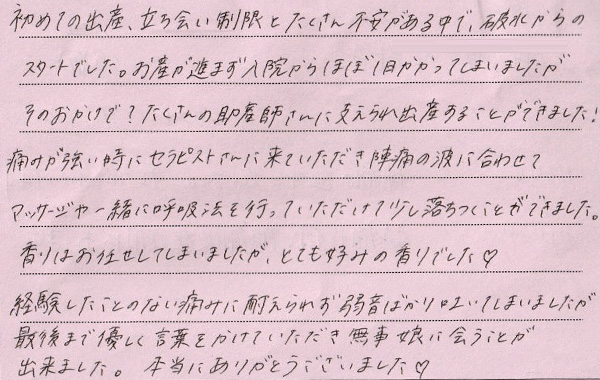 初めての出産、立ち会い制限とたくさん不安がある中で、破水からの
スタートでした。お産が進まず入院からほぼ1日かかってしまいましたが
そのおかげで？たくさんの助産師さんに支えられ出産することができました！
痛みが強い時にセラピストさんに来ていただき陣痛の波に合わせて
マッサージや一緒に呼吸法を行っていただけて少し落ちつくことができました。
香りはお任せしてしまいましたが、とても好みの香りでした♡
経験したことのない痛みに耐えられず弱音ばかり吐いてしまいましたが
最後まで優しく言葉をかけていただき無事娘に会うことが
出来ました。 本当にありがとうございました♡